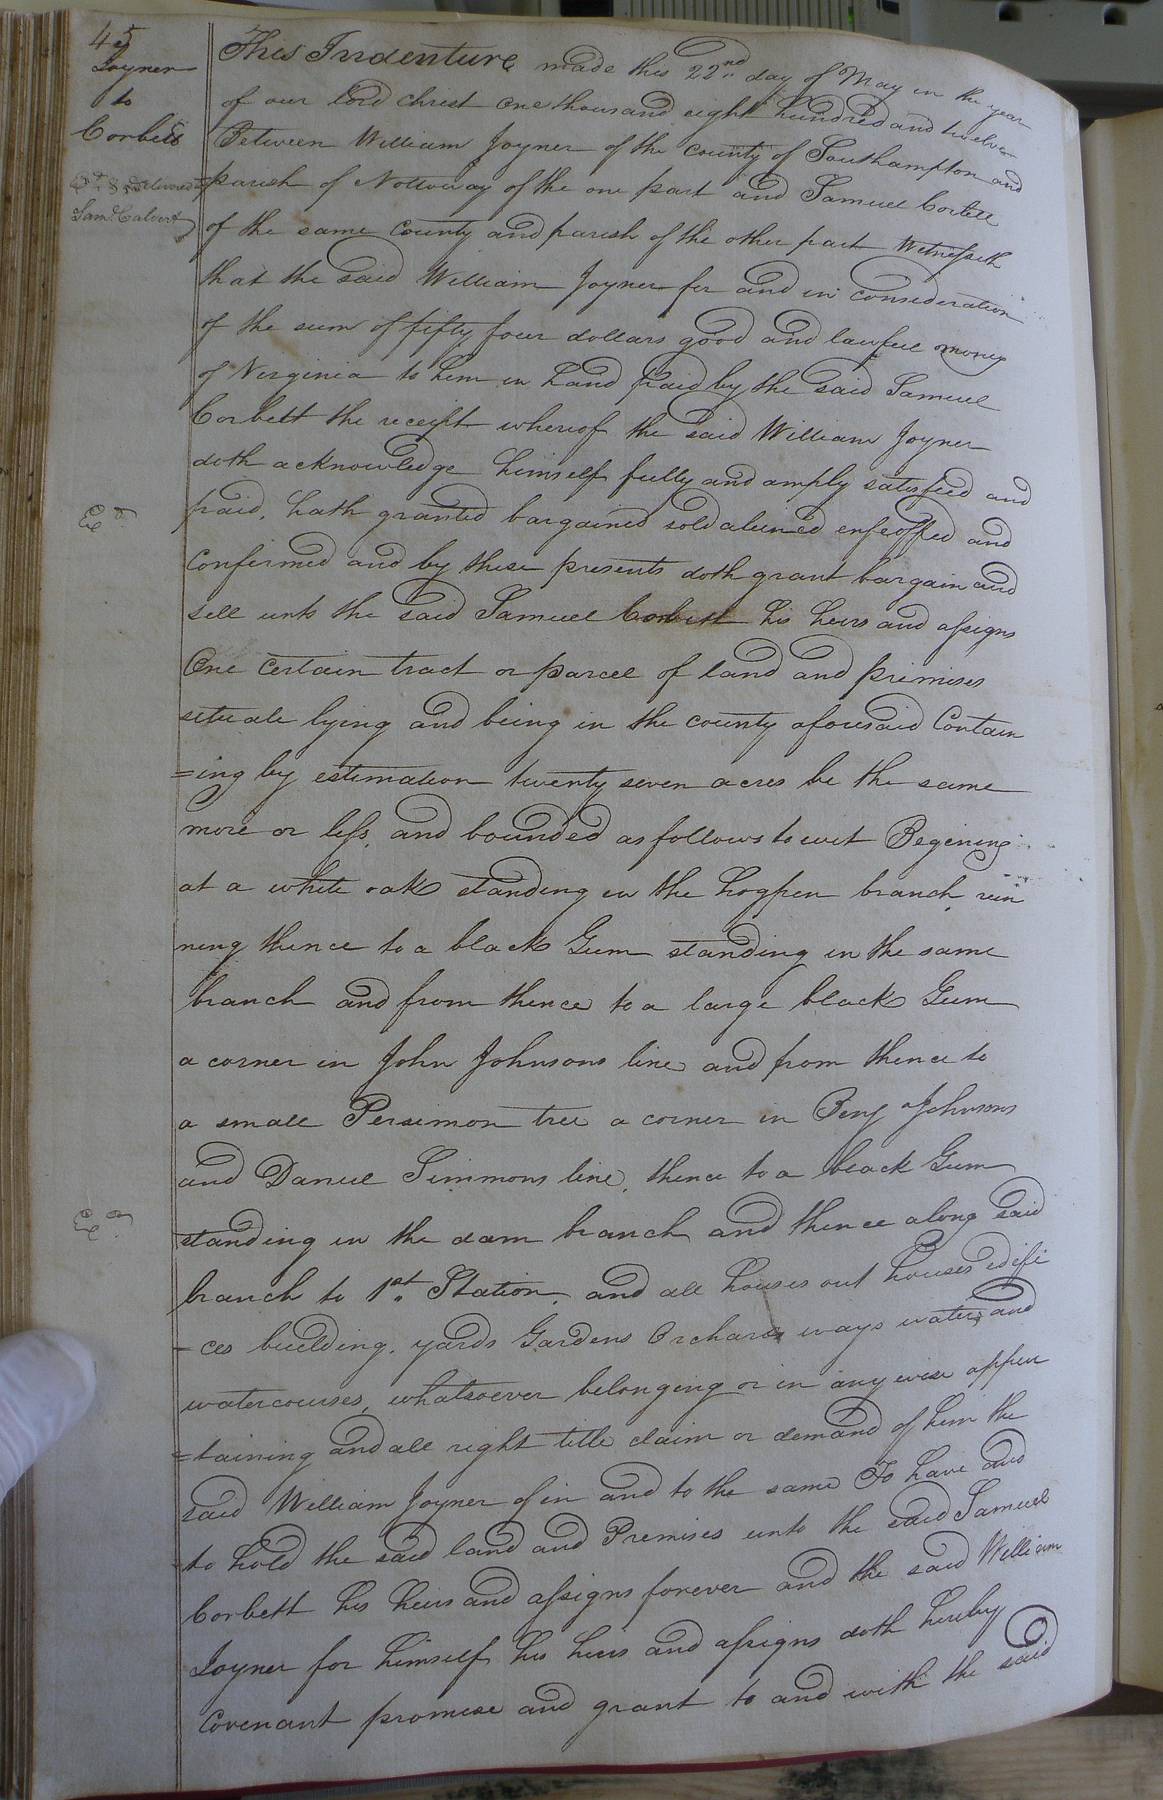 45
Joyner
to
Corbett
Ed & delivered
Saml Calvert
Ed
Ed
This Indenture made this 22nd day of May in the year
of our lord christ one thousand eight hundred and twelve
Between William Joyner of the county of Southampton and
parish of Nottoway of the one part and Samuel Corbett
of the same County and parish of the other part Witnesseth
that the said William Joyner for and in consideration
of the sum of fifty four dollars good and lawfull money
of Virginia to him in hand paid by the said Samuel
Corbett the receipt whereof the said William Joyner
doth acknowledge himself fully and amply satisfied and
paid, hath granted bargained sold aliened enfeoffed and
confirmed and by these presents doth grant bargain and
sell unto the said Samuel Corbett his heirs and assigns
One certain tract or parcel of land and primises
situate lying and being in the county aforesaid Contain
=ing by estimation twenty seven acres be the same
more or less, and bounded as follows to wit Begining
at a white oak standing in the hogpen branch run
ning thence to a black Gum standing in the same
branch and from thence to a large black Gum
a corner in John Johnsons line and from thence to
a small Persimon tree a corner in Benj Johnsons
and Daniel Simmons line, thence to a black Gum
standing in the dam branch and thence along said
branch to 1st Station, and all houses out houses edifi
-ces building, yards Gardens Orchards ways waters and
watercourses, whatsoever belonging or in any wise appur
=taining and all right title claim or demand of him the
said William Joyner of in and to the same To have and
to hold the said land and Premises unto the said Samuel
Corbett his heirs and assigns forever and the said William
Joyner for himself his heirs and assigns doth hereby
Covenant promise and grant to and with the said